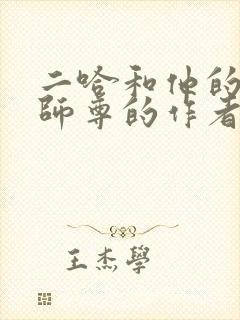 二哈和他的
師尊的作者
王杰學